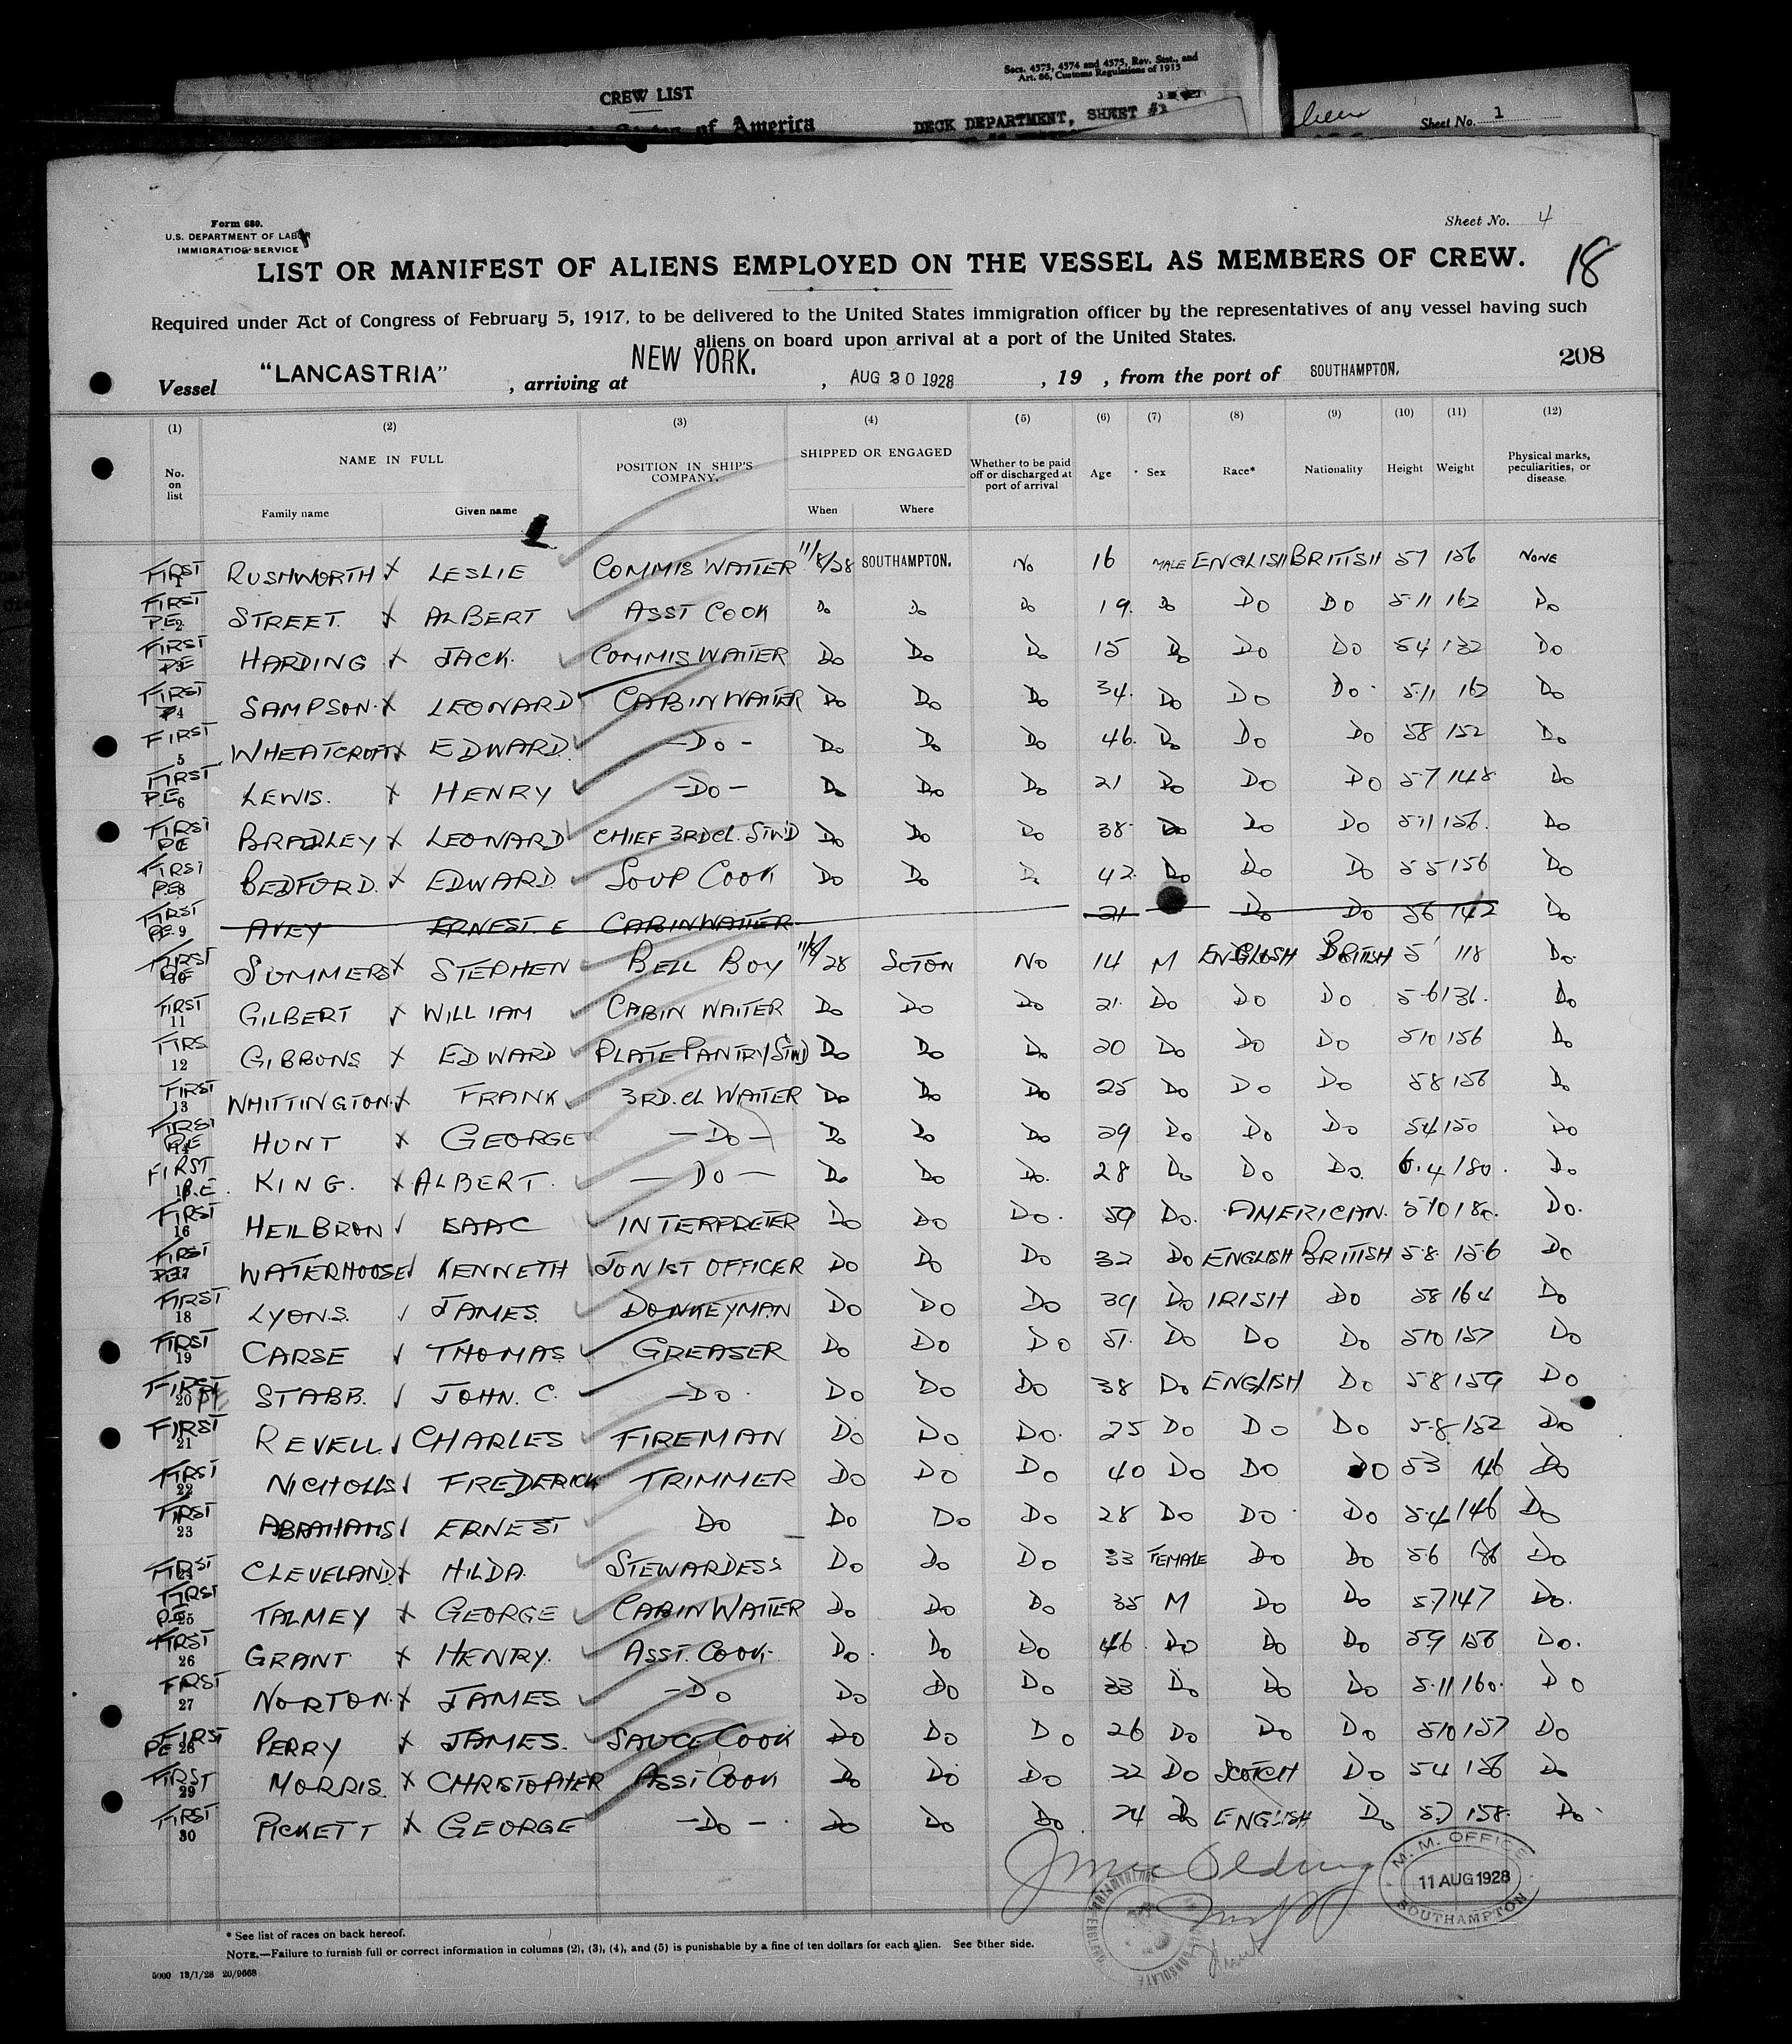 Secs. 4573, 4574 and 4575, Rev. Stat., and
Art. 86, Customs Regulations of 1915
CREW LIST
of America
DECK DEPARTMENT, SHEET #1
Sheet No. 1
Form 680.
U.S. DEPARTMENT OF LABOR
IMMIGRATION SERVICE
Sheet No. 4
LIST OR MANIFEST OF ALIENS EMPLOYED ON THE VESSEL AS MEMBERS OF CREW.
18
Required under Act of Congress of February 5, 1917, to be delivered to the United States immigration officer by the representatives of any vessel having such
aliens on board upon arrival at a port of the United States.
208
Vessel "LANCASTRIA", arriving at NEW YORK., AUG 20 1928, 19 , from the port of SOUTHAMPTON.
(1) (2) (3) (4) (5) (6) (7) (8) (9) (10) (11) (12)
No. on list NAME IN FULL POSITION IN SHIP'S COMPANY. SHIPPED OR ENGAGED Whether to be paid off or discharged at port of arrival Age Sex Race* Nationality Height Weight Physical marks, peculiarities, or disease.
Family name Given name When Where
FIRST 1 RUSHWORTH X LESLIE COMMIS WAITER 11/8/28 SOUTHAMPTON. No 16 MALE ENGLISH BRITISH 57 156 NONE
FIRST P.E. 2 STREET. X ALBERT ASST COOK Do Do Do 19. Do Do Do 5·11 162 Do
FIRST PE 3 HARDING X JACK. COMMIS WAITER Do Do Do 15 Do Do Do 54 132 Do
FIRST 4 SAMPSON. X LEONARD CABIN WAITER Do Do Do 34. Do Do Do 5·11 162 Do
FIRST 5 WHEATCROFT X EDWARD. —Do— Do Do Do 46. Do Do Do 58 152 Do
FIRST P.E. 6 LEWIS. X HENRY —Do— Do Do Do 21 Do Do Do 5·7 148 Do
FIRST PE BRADLEY X LEONARD CHIEF 3RD Cl. STW'D Do Do Do 38 Do Do Do 5·11 156. Do
FIRST P.E. 8 BEDFORD. X EDWARD SOUP COOK Do Do Do 42 Do Do Do 55 156 Do
FIRST PE. 9 AVEY ERNEST. E CABIN WAITER 21 Do Do 56 142 Do
FIRST PE 10 SUMMERS X STEPHEN BELL BOY 11/8/28 SOTON NO 14 M ENGLISH BRITISH 5' 118 Do.
FIRST 11 GILBERT X WILLIAM CABIN WAITER Do Do Do 21. Do Do Do 5·6 136. Do
FIRS 12 GIBBONS X EDWARD PLATE PANTRY STWD Do Do Do 20 Do Do Do 510 156 Do
FIRST 13 WHITTINGTON. X FRANK 3RD. Cl WAITER Do Do Do 25 Do Do Do 58 156 Do
FIRST P.E 14 HUNT X GEORGE —Do— Do Do Do 29 Do Do Do 54 150 Do
FIRST P.E. KING. X ALBERT. —Do— Do Do Do. 28 Do Do Do. 6·4 180. Do
FIRST 16 HEILBRON √ ISAAC INTERPRETER Do Do Do. 59 Do. AMERICAN. 510 180. Do.
FIRST PE 17 WATERHOUSE √ KENNETH JUN 1ST OFFICER Do Do Do 32 Do ENGLISH BRITISH 5·8 156 Do
FIRST 18 LYONS. √ JAMES. DONKEYMAN Do Do Do 39 Do IRISH Do 58 164 Do
FIRST 19 CARSE √ THOMAS GREASER Do Do Do 51. Do Do Do 510 157 Do
FIRST 20 STABB. √ JOHN. C. —Do. Do Do Do 38 Do ENGLISH Do 58 159 Do
FIRST 21 REVELL √ CHARLES FIREMAN Do Do Do. 25 Do Do Do 5·8 152 Do
FIRST 22 NICHOLLS √ FREDERICK TRIMMER Do Do Do 40 Do Do Do 53 146 Do
FIRST 23 ABRAHAMS √ ERNEST Do Do Do Do 28 Do Do Do 5·4 146 Do
FIRST 24 CLEVELAND X HILDA. STEWARDESS Do Do Do 33 FEMALE Do Do 5·6 Do
FIRST P.E 25 TALMEY X GEORGE CABIN WAITER Do Do Do 35 M Do Do 5·7 147 Do.
FIRST 26 GRANT X HENRY. ASST. COOK Do. Do Do 46. Do Do Do 59 156 Do.
FIRST 27 NORTON. X JAMES —Do Do Do Do 33 Do Do Do 5·11 160. Do
FIRST PE 28 PERRY X JAMES. SAUCE COOK Do Do Do 26 Do Do Do 510 157 Do
FIRST 29 MORRIS. X CHRISTOPHER ASST COOK Do Do Do 22 Do SCOTCH Do 54 156 Do
FIRST 30 PICKETT X GEORGE —Do— Do Do Do 24 Do ENGLISH Do 5·7 158. Do
M. M. OFFICE
11 AUG 1928
SOUTHAMPTON
* See list of races on back hereof.
NOTE.—Failure to furnish full or correct information in columns (2), (3), (4), and (5) is punishable by a fine of ten dollars for each alien. See other side.
5000 13/1/28 20/9668